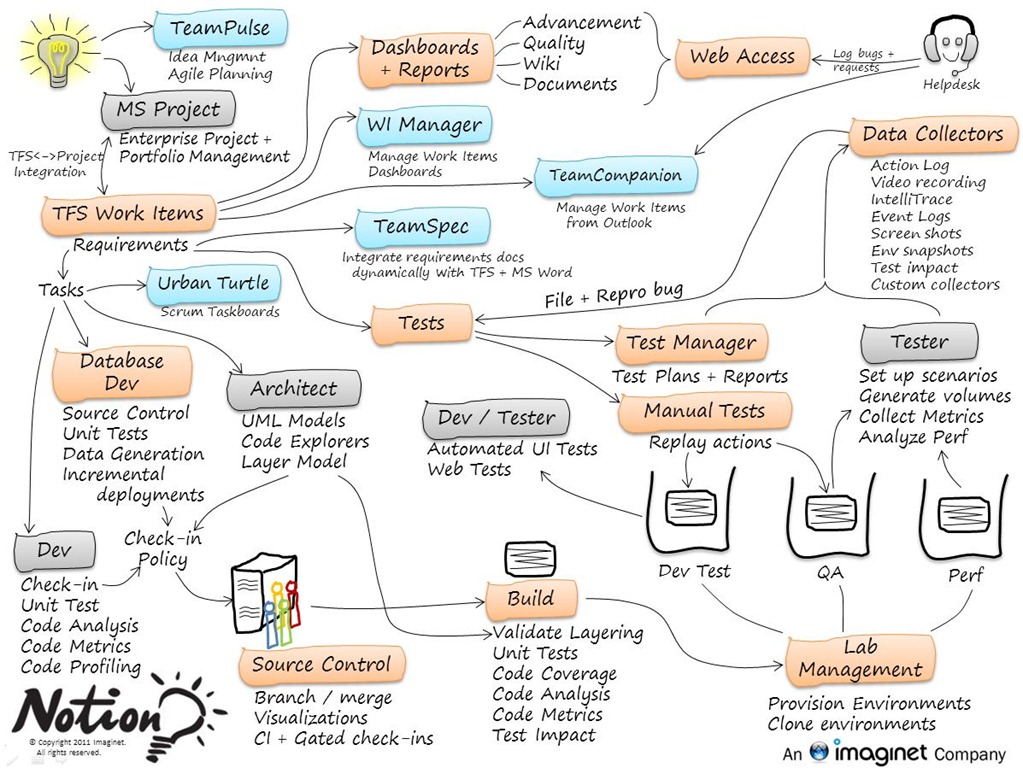 TeamPulse
Idea Mngmnt
Agile Planning
MS Project
Enterprise Project +
Portfolio Management
TFS<->Project
Integration
Dashboards
+ Reports
Advancement
Quality
Wiki
Documents
Web Access
Log bugs +
requests
Helpdesk
WI Manager
Manage Work Items
Dashboards
TeamCompanion
Manage Work Items
from Outlook
Data Collectors
Action Log
Video recording
IntelliTrace
Event Logs
Screen shots
Env snapshots
Test impact
Custom collectors
TFS Work Items
Requirements
TeamSpec
Integrate requirements docs
dynamically with TFS + MS Word
Tasks
Urban Turtle
Scrum Taskboards
File + Repro bug
Tests
Test Manager
Test Plans + Reports
Tester
Set up scenarios
Generate volumes
Collect Metrics
Analyze Perf
Manual Tests
Replay actions
Database
Dev
Source Control
Unit Tests
Data Generation
Incremental
deployments
Architect
UML Models
Code Explorers
Layer Model
Dev / Tester
Automated UI Tests
Web Tests
Dev Test
QA
Perf
Dev
Check-in
Unit Test
Code Analysis
Code Metrics
Code Profiling
Check-in
Policy
Source Control
Branch / merge
Visualizations
CI + Gated check-ins
Build
Validate Layering
Unit Tests
Code Coverage
Code Analysis
Code Metrics
Test Impact
Lab
Management
Provision Environments
Clone environments
Notion
© Copyright 2011 Imaginet.
All rights reserved.
An imaginet Company